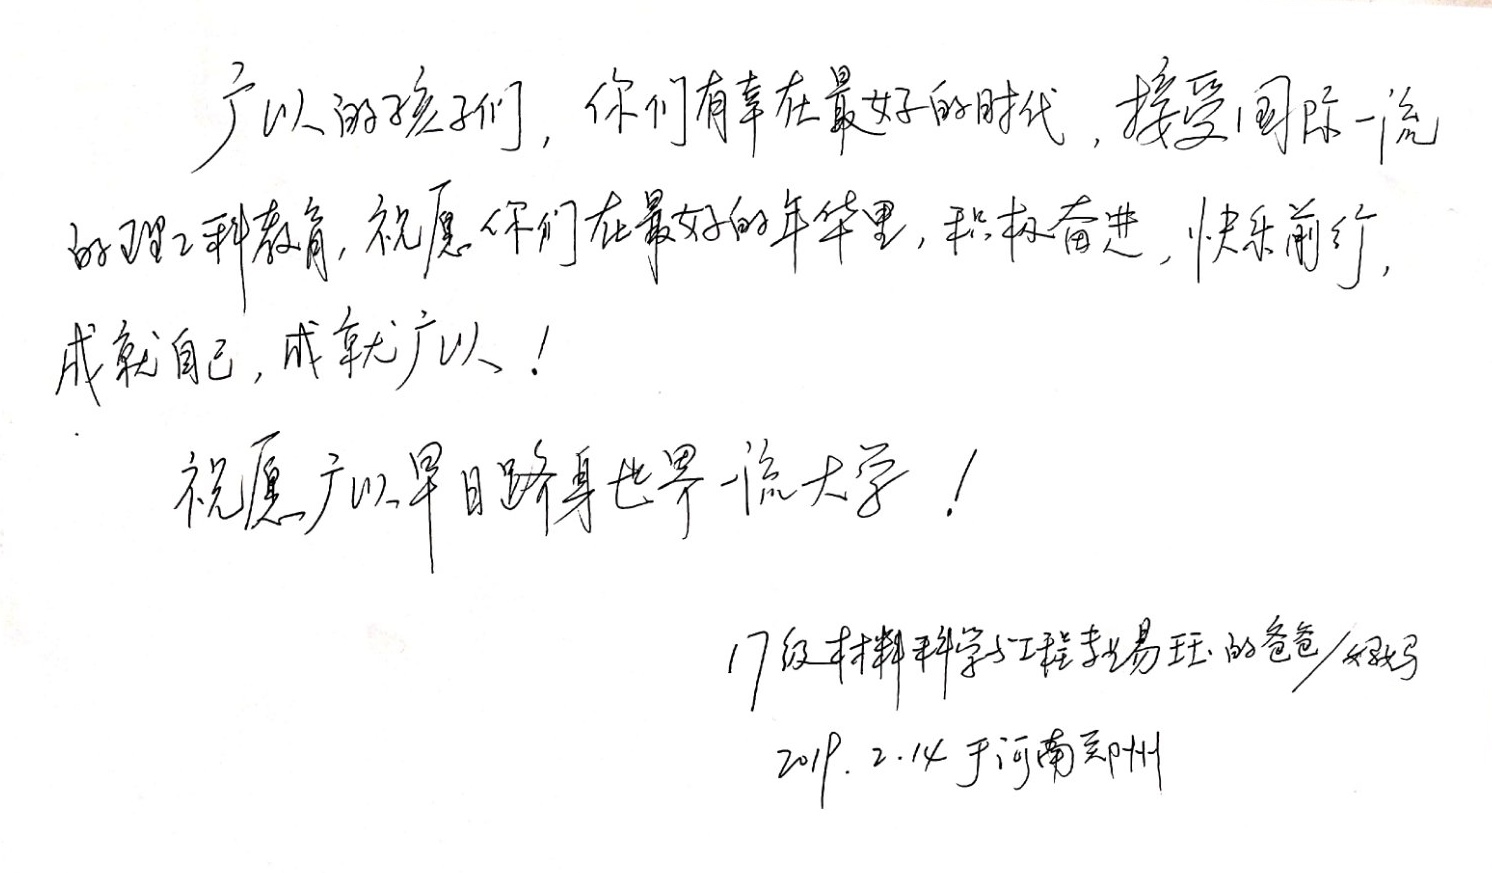 广以的孩子们，你们有幸在最好的时代，接受国际一流
的理工科教育，祝愿你们在最好的年华里，积极奋进，快乐前行，
成就自己，成就广以！
祝愿广以早日跻身世界一流大学！
17级材料科学与工程赵易珏的爸爸/妈妈
2019.2.14于河南郑州